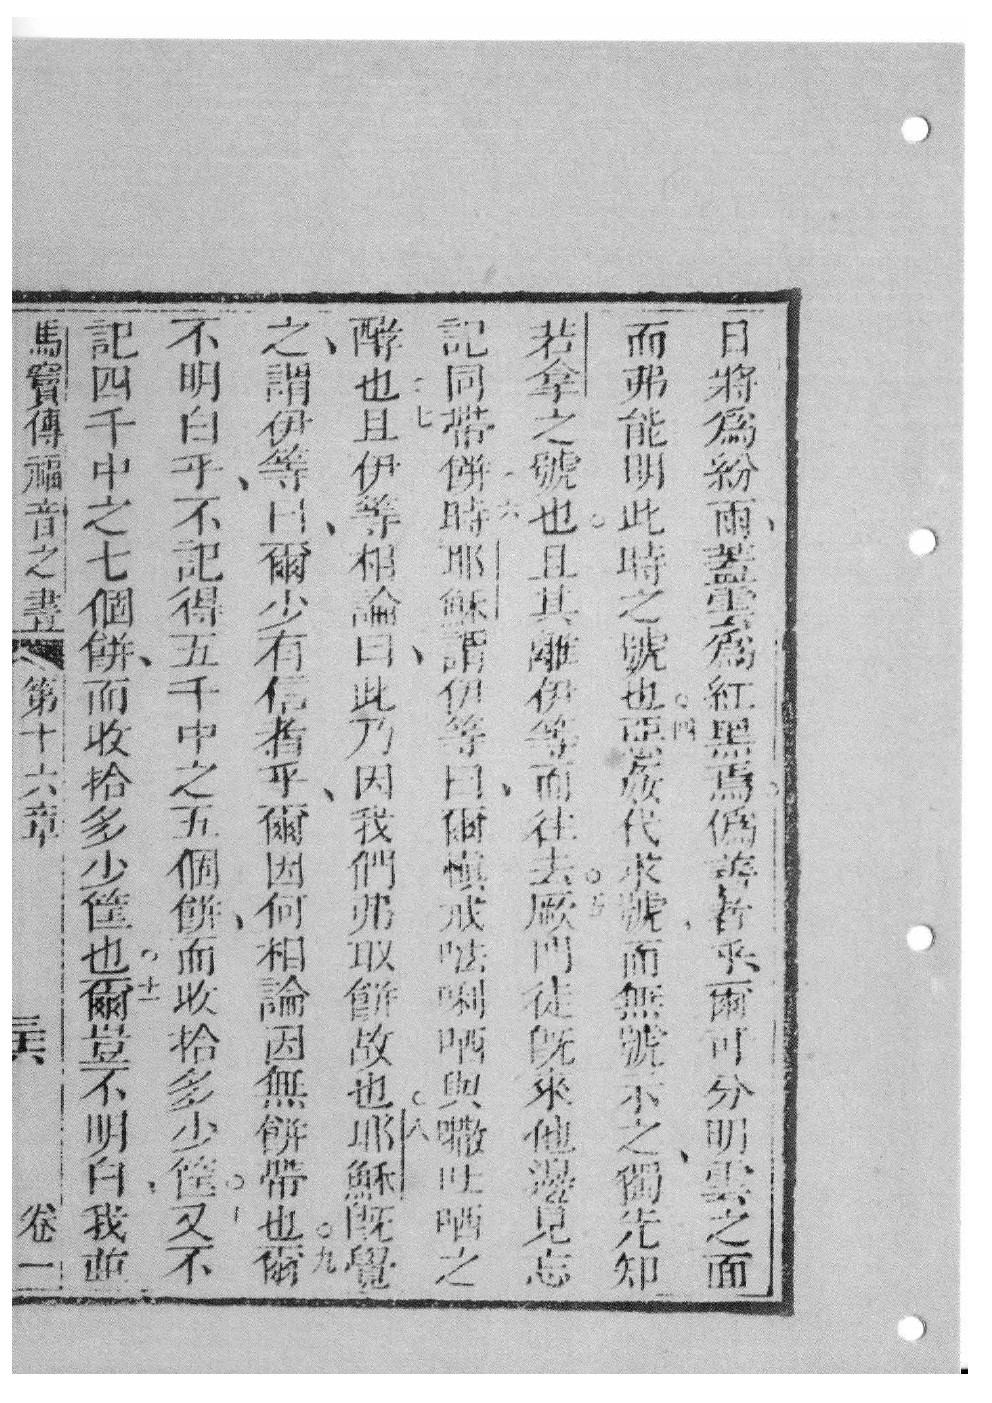 日將為紛雨、蓋雲為紅黑焉。偽善者乎、爾可分明雲之面
而弗能明此時之號也。四惡姦代求號、而無號示之、獨先知
若拿之號也。且其離伊等而往去。五厥門徒既來他邊、見忘
記同帶餅時、六耶穌謂伊等曰、爾慎戒𠵽唎哂與㘔吐哂之
酵也。七且伊等相論曰、此乃因我們弗取餅故也。八耶穌既覺
之、謂伊等曰、爾少有信者乎、爾因何相論因無餅帶也。九爾
不明白乎、不記得五千中之五個餅、而收拾多少筐。十又不
記四千中之七個餅、而收拾多少筐也。十一爾豈不明白、我並
馬竇傳福音之書 第十六章 卷一